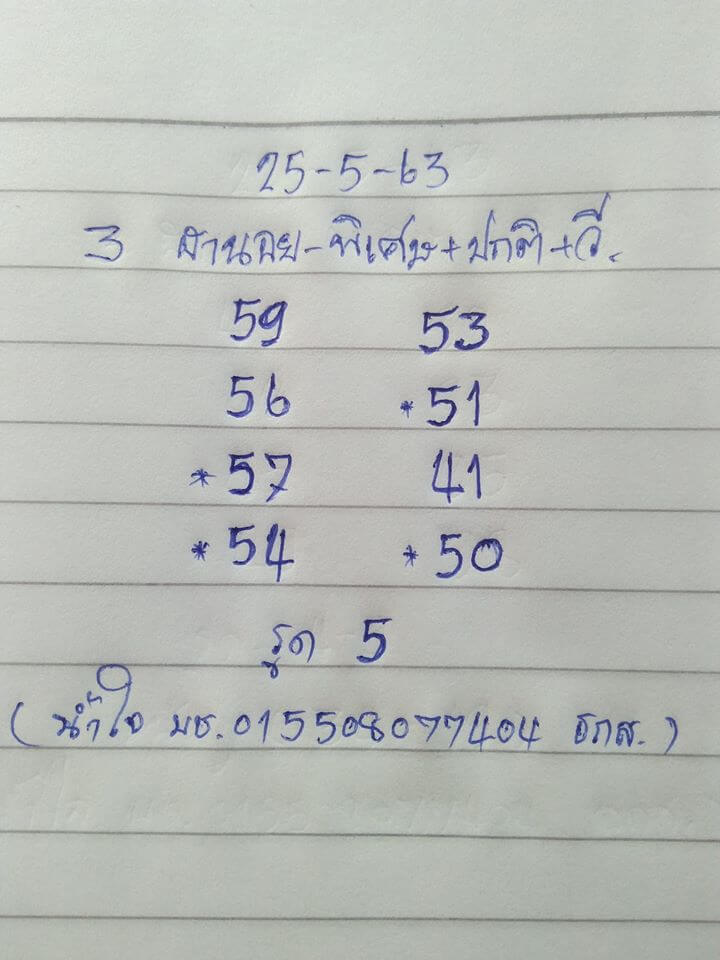 25-5-63
3 ฮานอย-พิเศษ+ปกติ+วี.
59 53
56 *51
*57 41
*54 *50
รูด 5
(น้ำใจ บช.015508077404 ธกส.)